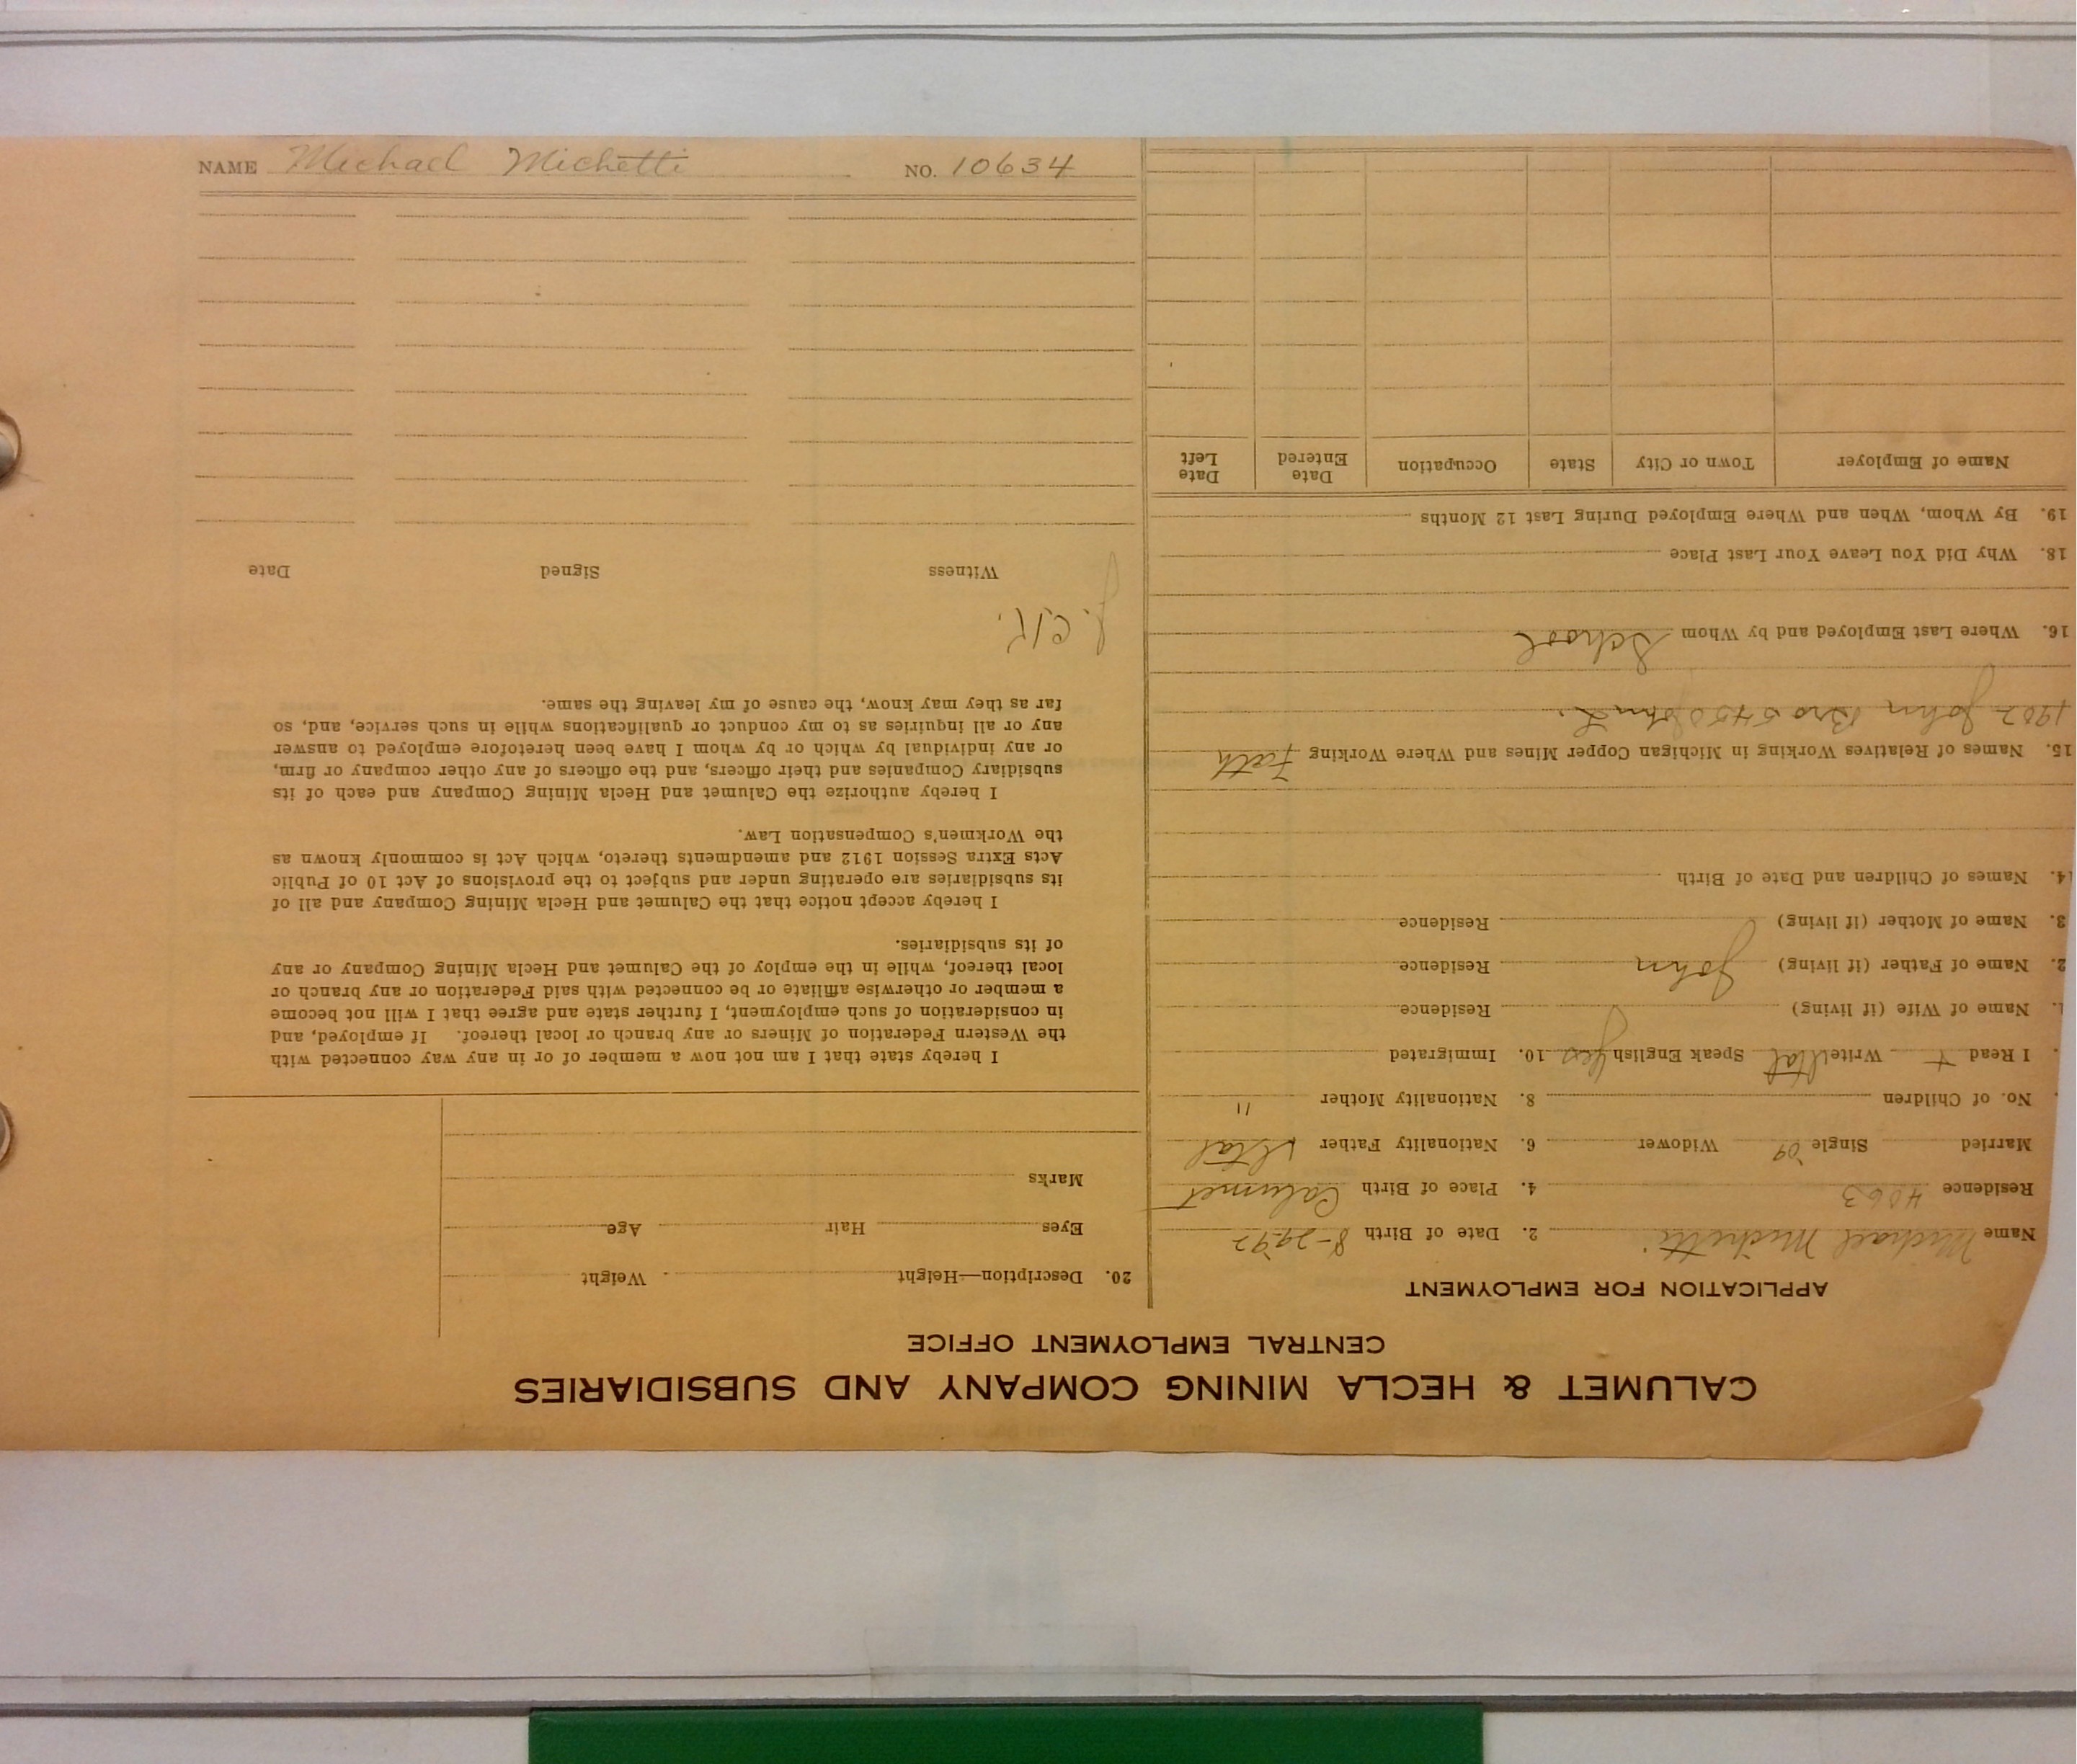 NAME Michael Michetti NO. 10634
CALUMET & HECLA MINING COMPANY AND SUBSIDIARIES
CENTRAL EMPLOYMENT OFFICE
APPLICATION FOR EMPLOYMENT
Name Michael Michetti 2. Date of Birth 8-29-92
Residence 4063 4. Place of Birth Calumet
Married Single '09 Widower 6. Nationality Father Ital
No. of Children 8. Nationality Mother "
I Read + Write Ital Speak English Yes 10. Immigrated
1. Name of Wife (if living) Residence
2. Name of Father (if living) John Residence
3. Name of Mother (if living) Residence
14. Names of Children and Date of Birth
15. Names of Relatives Working in Michigan Copper Mines and Where Working Fath
1902 John Bro 5450 John L.
16. Where Last Employed and by Whom School
18. Why Did You Leave Your Last Place
19. By Whom, When and Where Employed During Last 12 Months
Name of Employer Town or City State Occupation Date Entered Date Left
20. Description—Height Weight
Eyes Hair Age
Marks
I hereby state that I am not now a member of or in any way connected with
the Western Federation of Miners or any branch or local thereof. If employed, and
in consideration of such employment, I further state and agree that I will not become
a member or otherwise affiliate or be connected with said Federation or any branch or
local thereof, while in the employ of the Calumet and Hecla Mining Company or any
of its subsidiaries.
I hereby accept notice that the Calumet and Hecla Mining Company and all of
its subsidiaries are operating under and subject to the provisions of Act 10 of Public
Acts Extra Session 1912 and amendments thereto, which Act is commonly known as
the Workmen's Compensation Law.
I hereby authorize the Calumet and Hecla Mining Company and each of its
subsidiary Companies and their officers, and the officers of any other company or firm,
or any individual by which or by whom I have been heretofore employed to answer
any or all inquiries as to my conduct or qualifications while in such service, and, so
far as they may know, the cause of my leaving the same.
Witness Signed Date